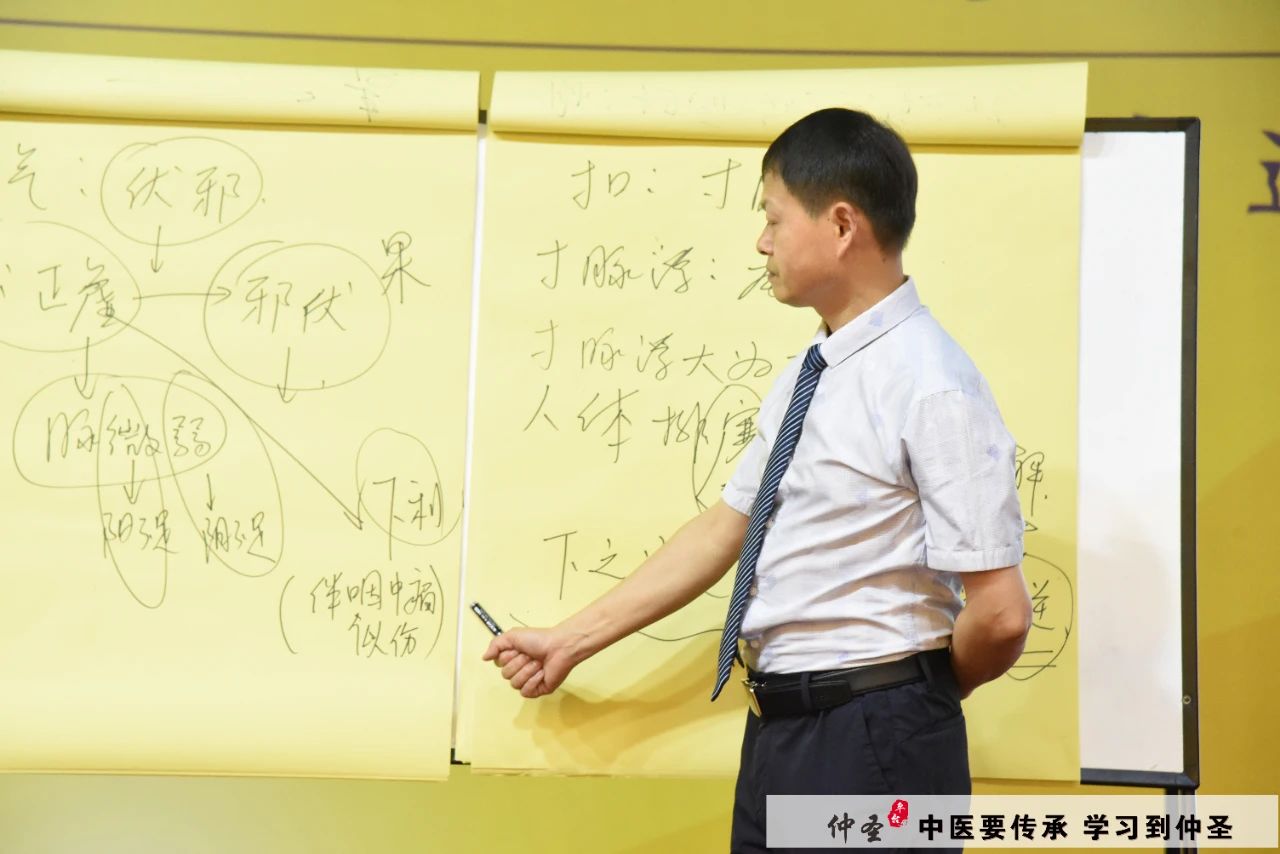 气：伏邪.
正虚 → 邪伏 果
脉微弱
阳不足 阴不足
下利
(伴咽中痛
似份)
扣：寸
寸脉浮：
寸脉浮大为
人体排
解.
下之
逆
仲圣 中医要传承 学习到仲圣